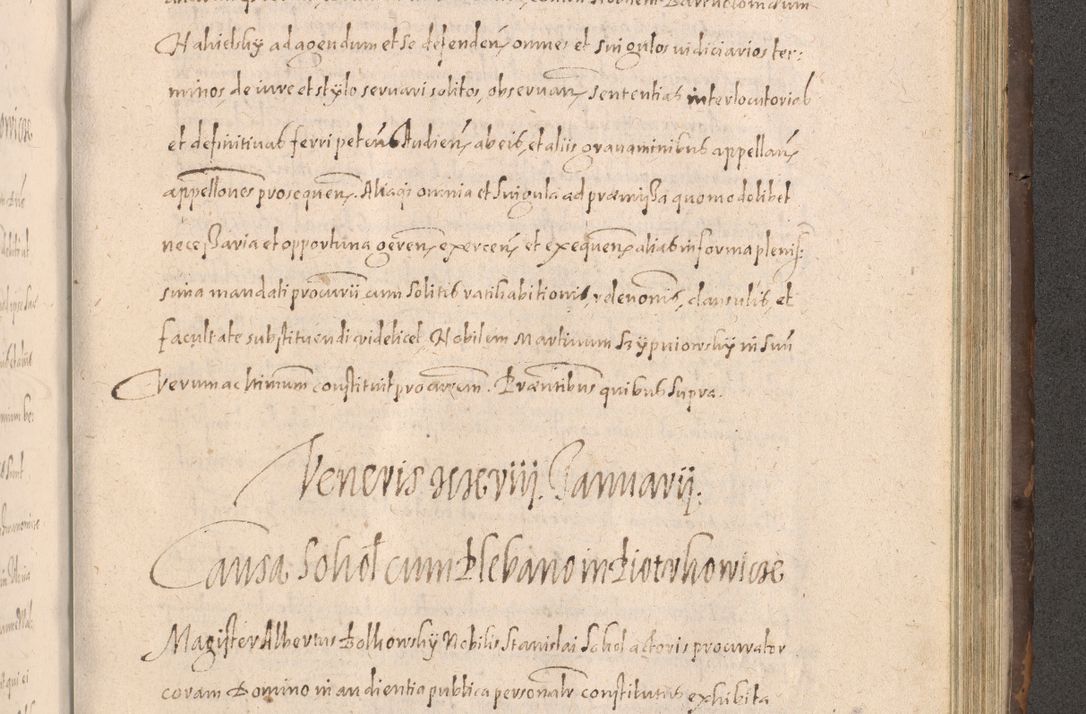 Hahielsky ad agendum et se defenden omnes et singulos iudiciarios ter:
minos, de iure et stylo servari solitos, observan sententias interlocutorias
et definitivas ferri peten Audien ab eis, et aliis gravaminibus appellan
appellones prosequen. Aliaqs omnia et singula ad præmissa quomodolibet
necessaria et opportuna geren exercen et exequen alias in forma plenis:
sima mandati procurii cum solitis ratihabitionis, relevonis, clausulis, et
facultate substituendi videlicet, Nobilem Martinum Szypniowsky in suu
verum ac ltimum constituit procurem. Præntibus quibus supra.
Veneris xxviij. Januarij.
Causa Sohol cum Plebano in Piotrkowicze
Magister Albertus Bolkowsky Nobilis Stanislai Sohol actoris procurator
coram Domino in audientia publica personalr constitutus exhibita